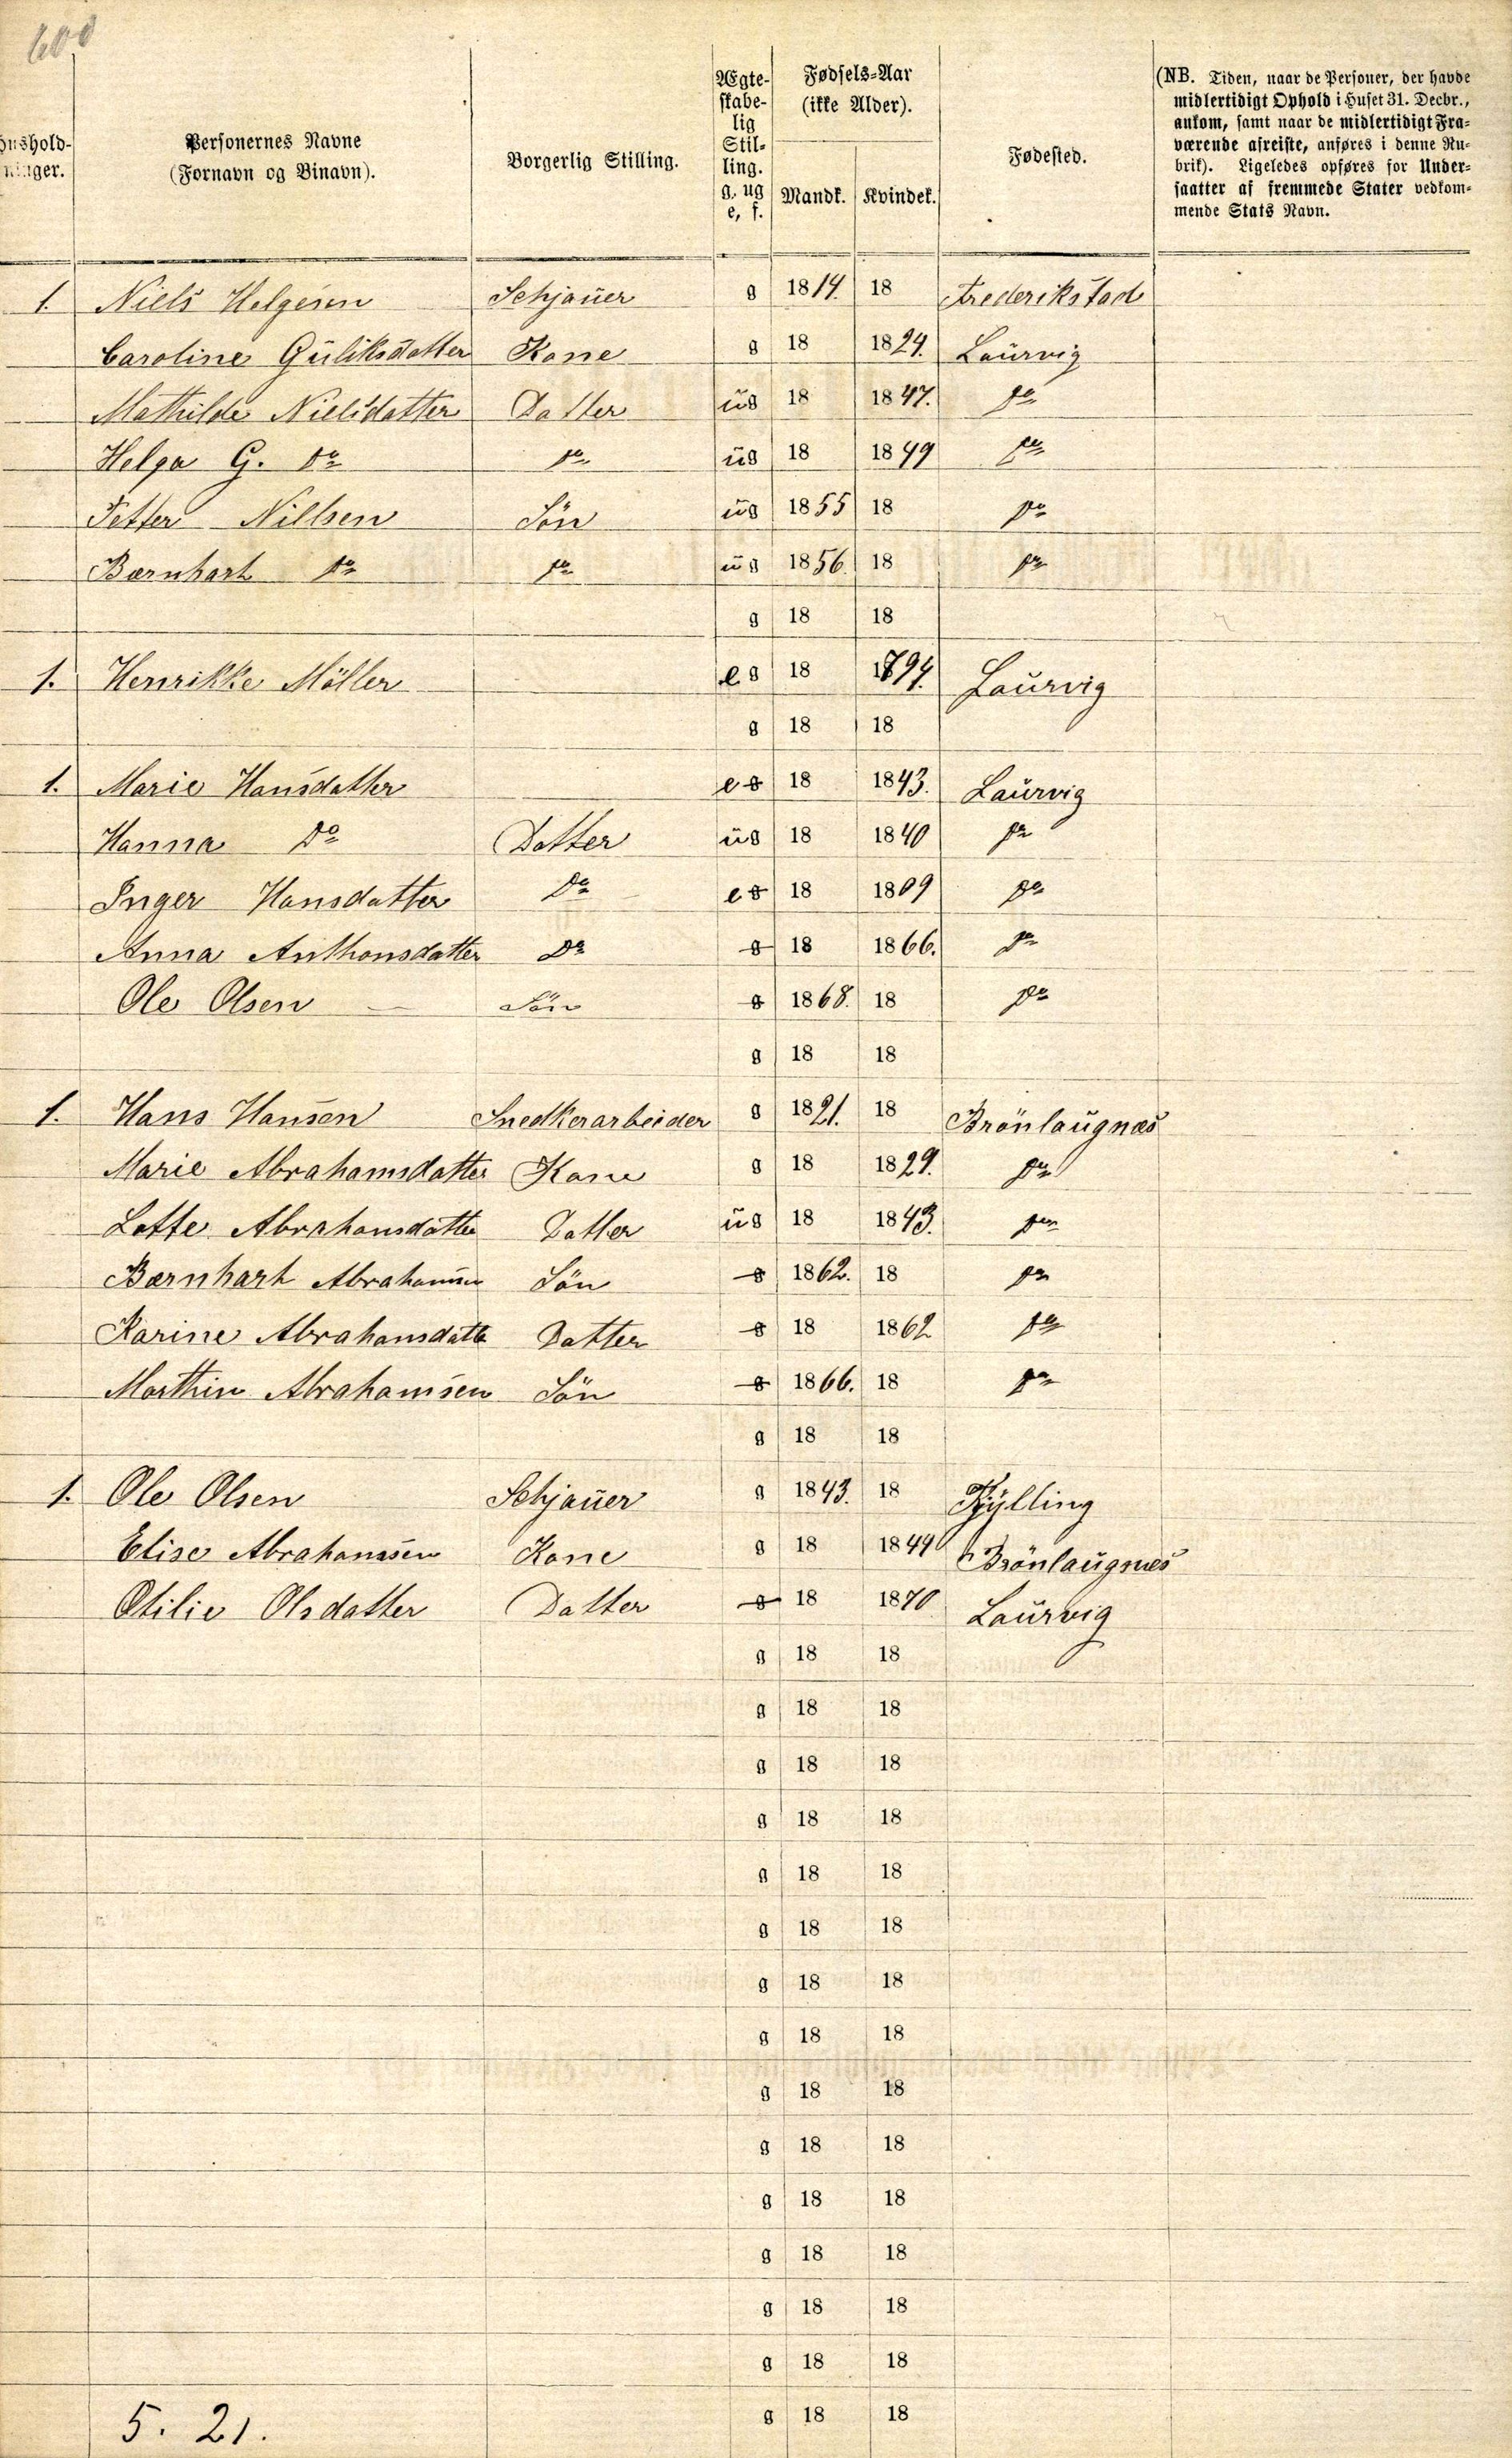 600
Hushold-
ninger.
Personernes Navne
(Fornavn og Binavn).
Borgerlig Stilling.
Ægte-
skabe-
lig
Stil-
ling.
g, ug
e, f.
Fødsels-Aar
(ikke Alder).
Mandk.
Kvindek.
Fødested.
(NB. Tiden, naar de Personer, der havde
midlertidigt Ophold i Huset 31. Decbr.,
ankom, samt naar de midlertidigt Fra-
værende afreiste, anføres i denne Ru-
brik). Ligeledes opføres for Under-
saatter af fremmede Stater vedkom-
mende Stats Navn.
1. Niels Helgesen Schjauer g 1814. 18 Frederikstad
Caroline Guliksdatter Kone g 18 1824. Laurvig
Mathilde Nielsdatter Datter ug 18 1847. do
Helga G. do do ug 18 1849 do
Petter Nilsen Sön ug 1855 18 do
Bærnhart do do ug 1856. 18 do
g 18 18
1. Henrikke Möller e g 18 1794. Laurvig
g 18 18
1. Marie Hansdatter e g 18 1843. Laurvig
Hanna do Datter ug 18 1840 do
Inger Hansdatter do e g 18 1809 do
Anna Anthonsdatter do g 18 1866. do
Ole Olsen Sön g 1868. 18 do
g 18 18
1. Hans Hansen Snedkerarbeider g 1821. 18 Brönlaugnæs
Marie Abrahamsdatter Kone g 18 1829. do
Lotte Abrahamsdatter Datter ug 18 1843. do
Bærnhart Abrahamsen Sön g 1862. 18 do
Karine Abrahamsdatte Datter g 18 1862 do
Marthin Abrahamsen Sön g 1866. 18 do
g 18 18
1. Ole Olsen Schjauer g 1843. 18 Kylling
Elise Abrahamssen Kone g 18 1849 Brönlaugnæs
Otilie Olsdatter Datter g 18 1870 Laurvig
g 18 18
g 18 18
g 18 18
g 18 18
g 18 18
g 18 18
g 18 18
g 18 18
g 18 18
g 18 18
g 18 18
g 18 18
g 18 18
g 18 18
g 18 18
5. 21.